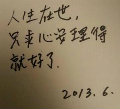 人生在世，
只求心安理得
就好了.
2013.6.